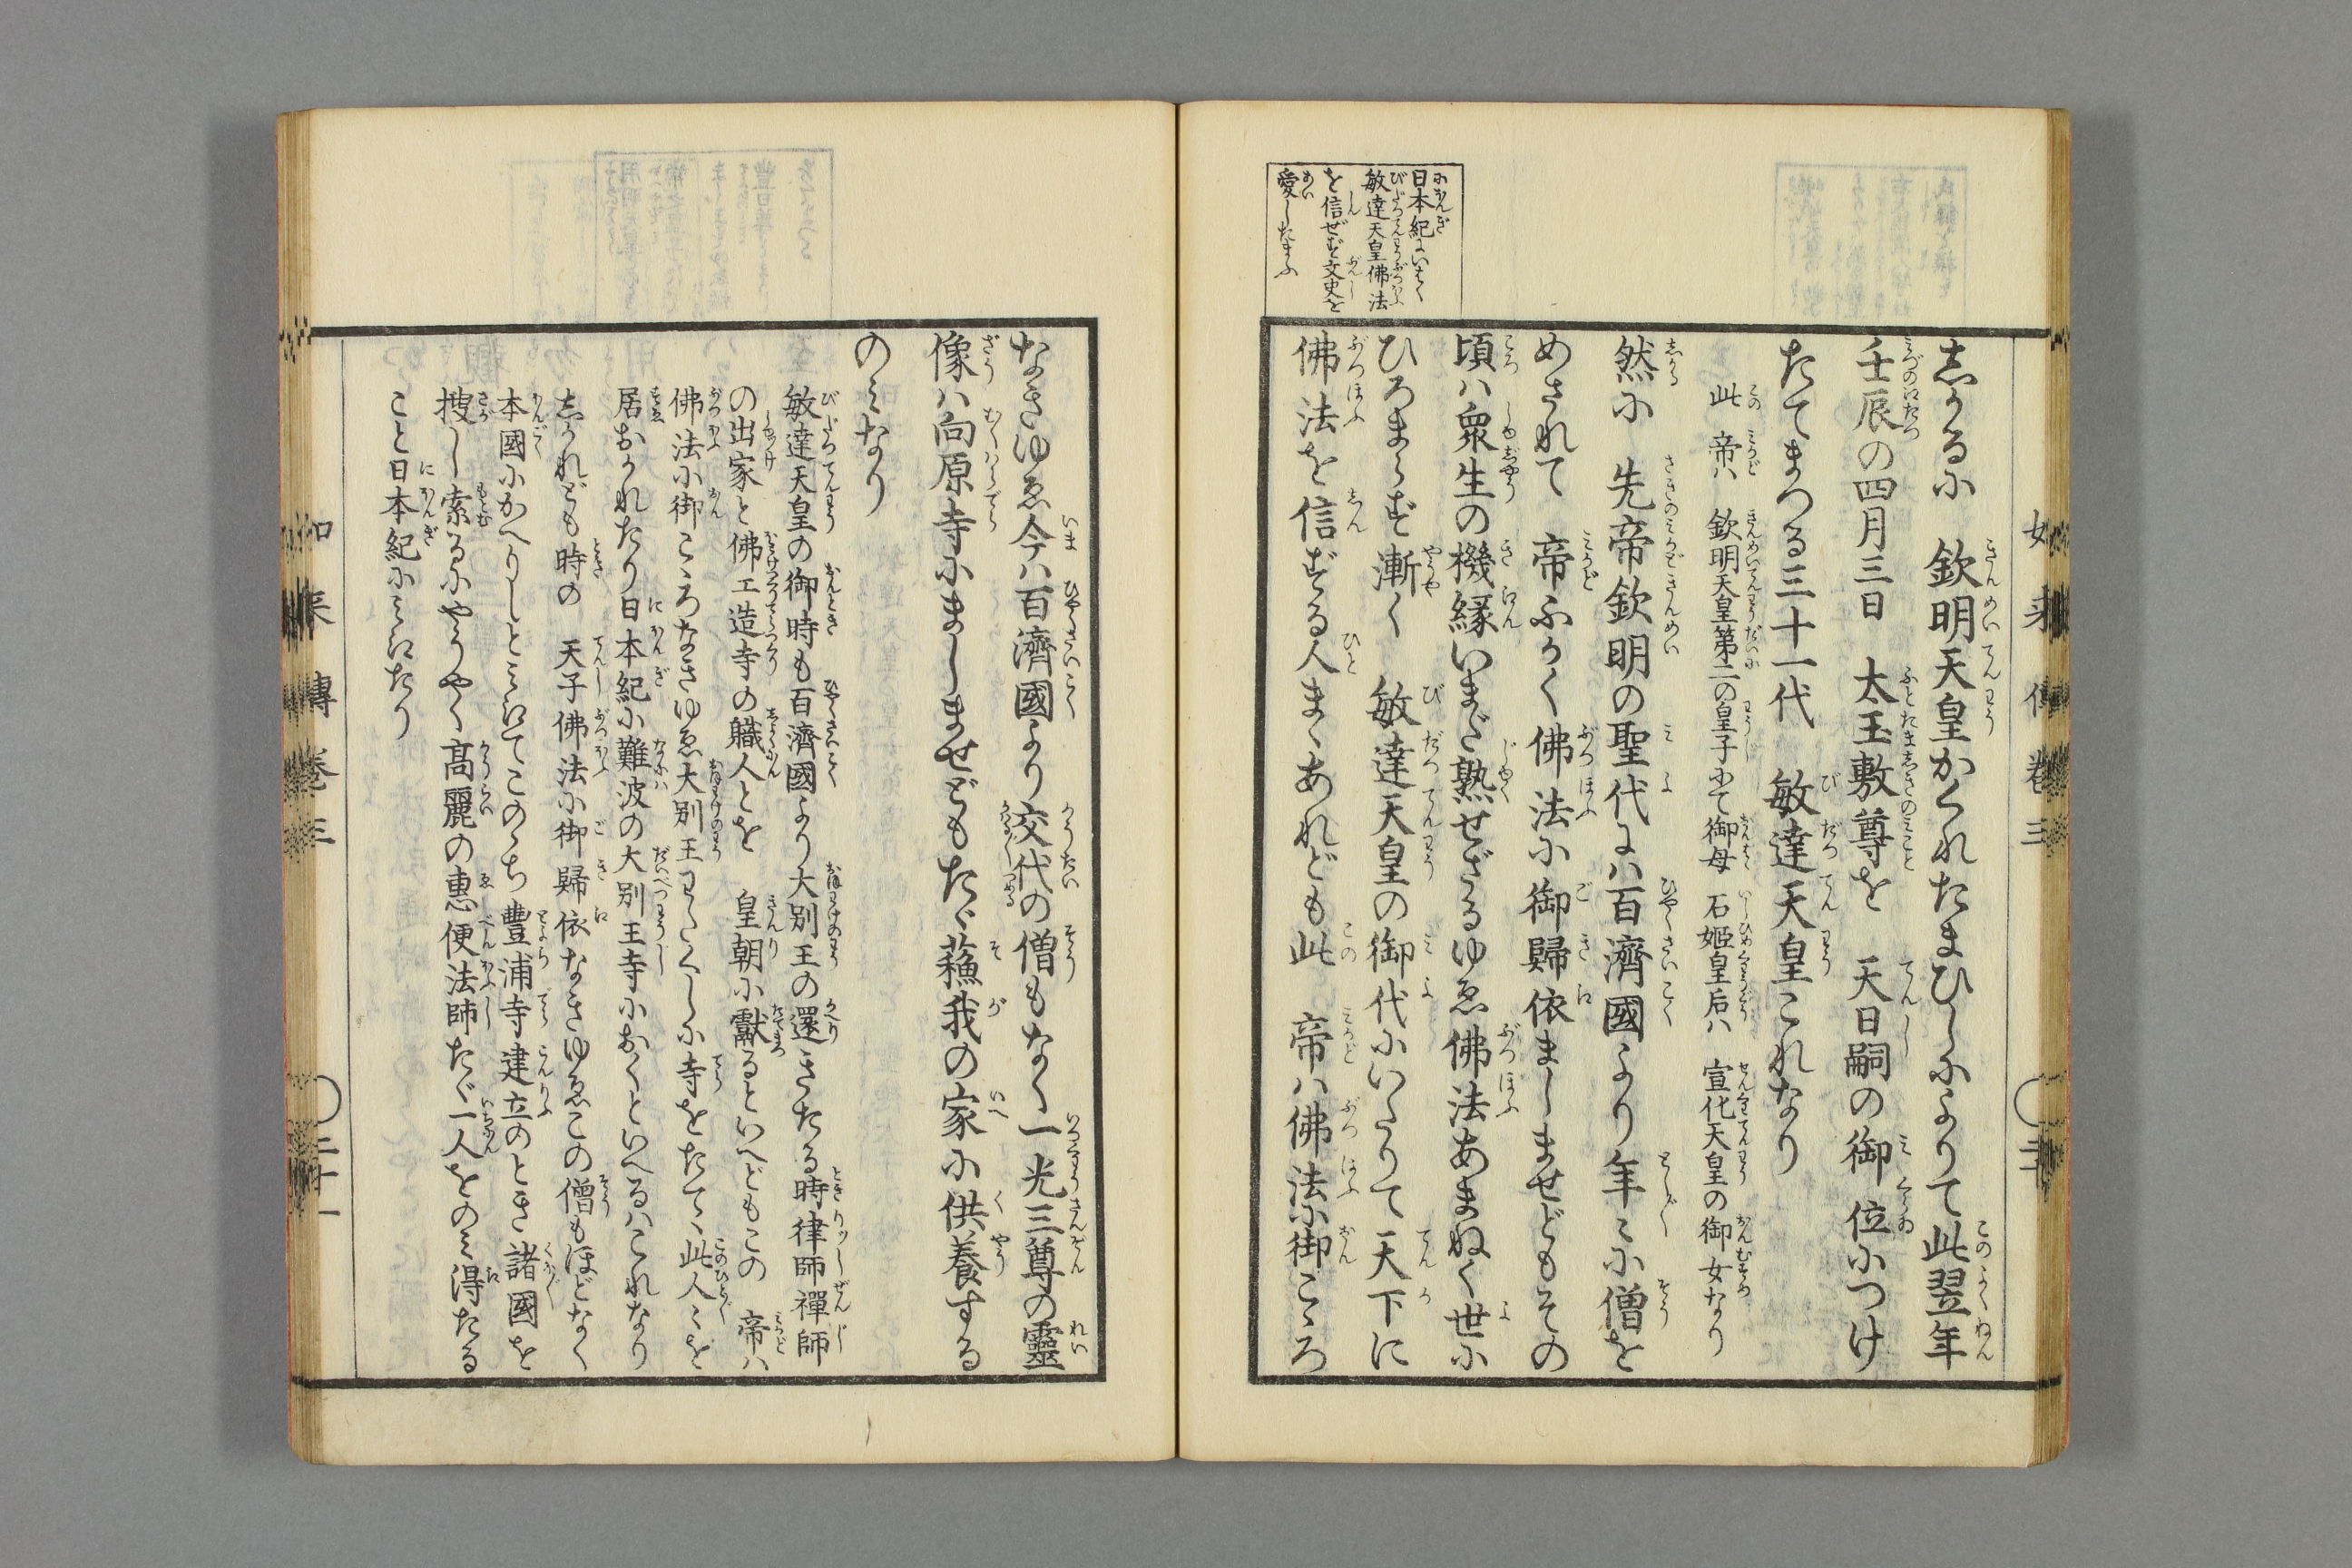 志かるに　欽明天皇かくれたまひしによりて此翌年
壬辰の四月三日　太玉敷尊を　天日嗣の御位につけ
たてまつる三十一代　敏達天皇これなり
此　帝ハ　欽明天皇第二の皇子にて御母　石姫皇后ハ　宣化天皇の御女なり
然に　先帝欽明の聖代にハ百濟國より年〻に僧を
めされて　帝ふかく佛法に御歸依ましませどもその
頃ハ衆生の機縁いまだ熟せざるゆゑ佛法あまねく世に
ひろまらず漸く　敏達天皇の御代にいたりて天下に
佛法を信ずる人まゝあれども此　帝ハ佛法に御こゝろ
日本紀にいはく
敏達天皇佛法
を信ぜず文史を
愛したまふ
なきゆゑ今ハ百濟國より交代の僧もなく一光三尊の靈
像ハ向原寺にましませどもたゞ蘓我の家に供養する
のミなり
敏達天皇の御時も百濟國より大別王の還きたる時律師禪師
の出家と佛工造寺の職人とを　皇朝に獻るといへどもこの　帝ハ
佛法に御こゝろなきゆゑ大別王わたくしに寺をたてゝ此人〻を
居おかれたり日本紀に難波の大別王寺におくといへるハこれなり
志かれども時の　天子佛法に御歸依なきゆゑこの僧もほどなく
本國にかへりしとミえてこのゝち豊浦寺建立のとき諸國を
搜し索るにやうやく高麗の惠便法師たゞ一人をのミ得たる
こと日本紀にミえたり
如来傳巻三